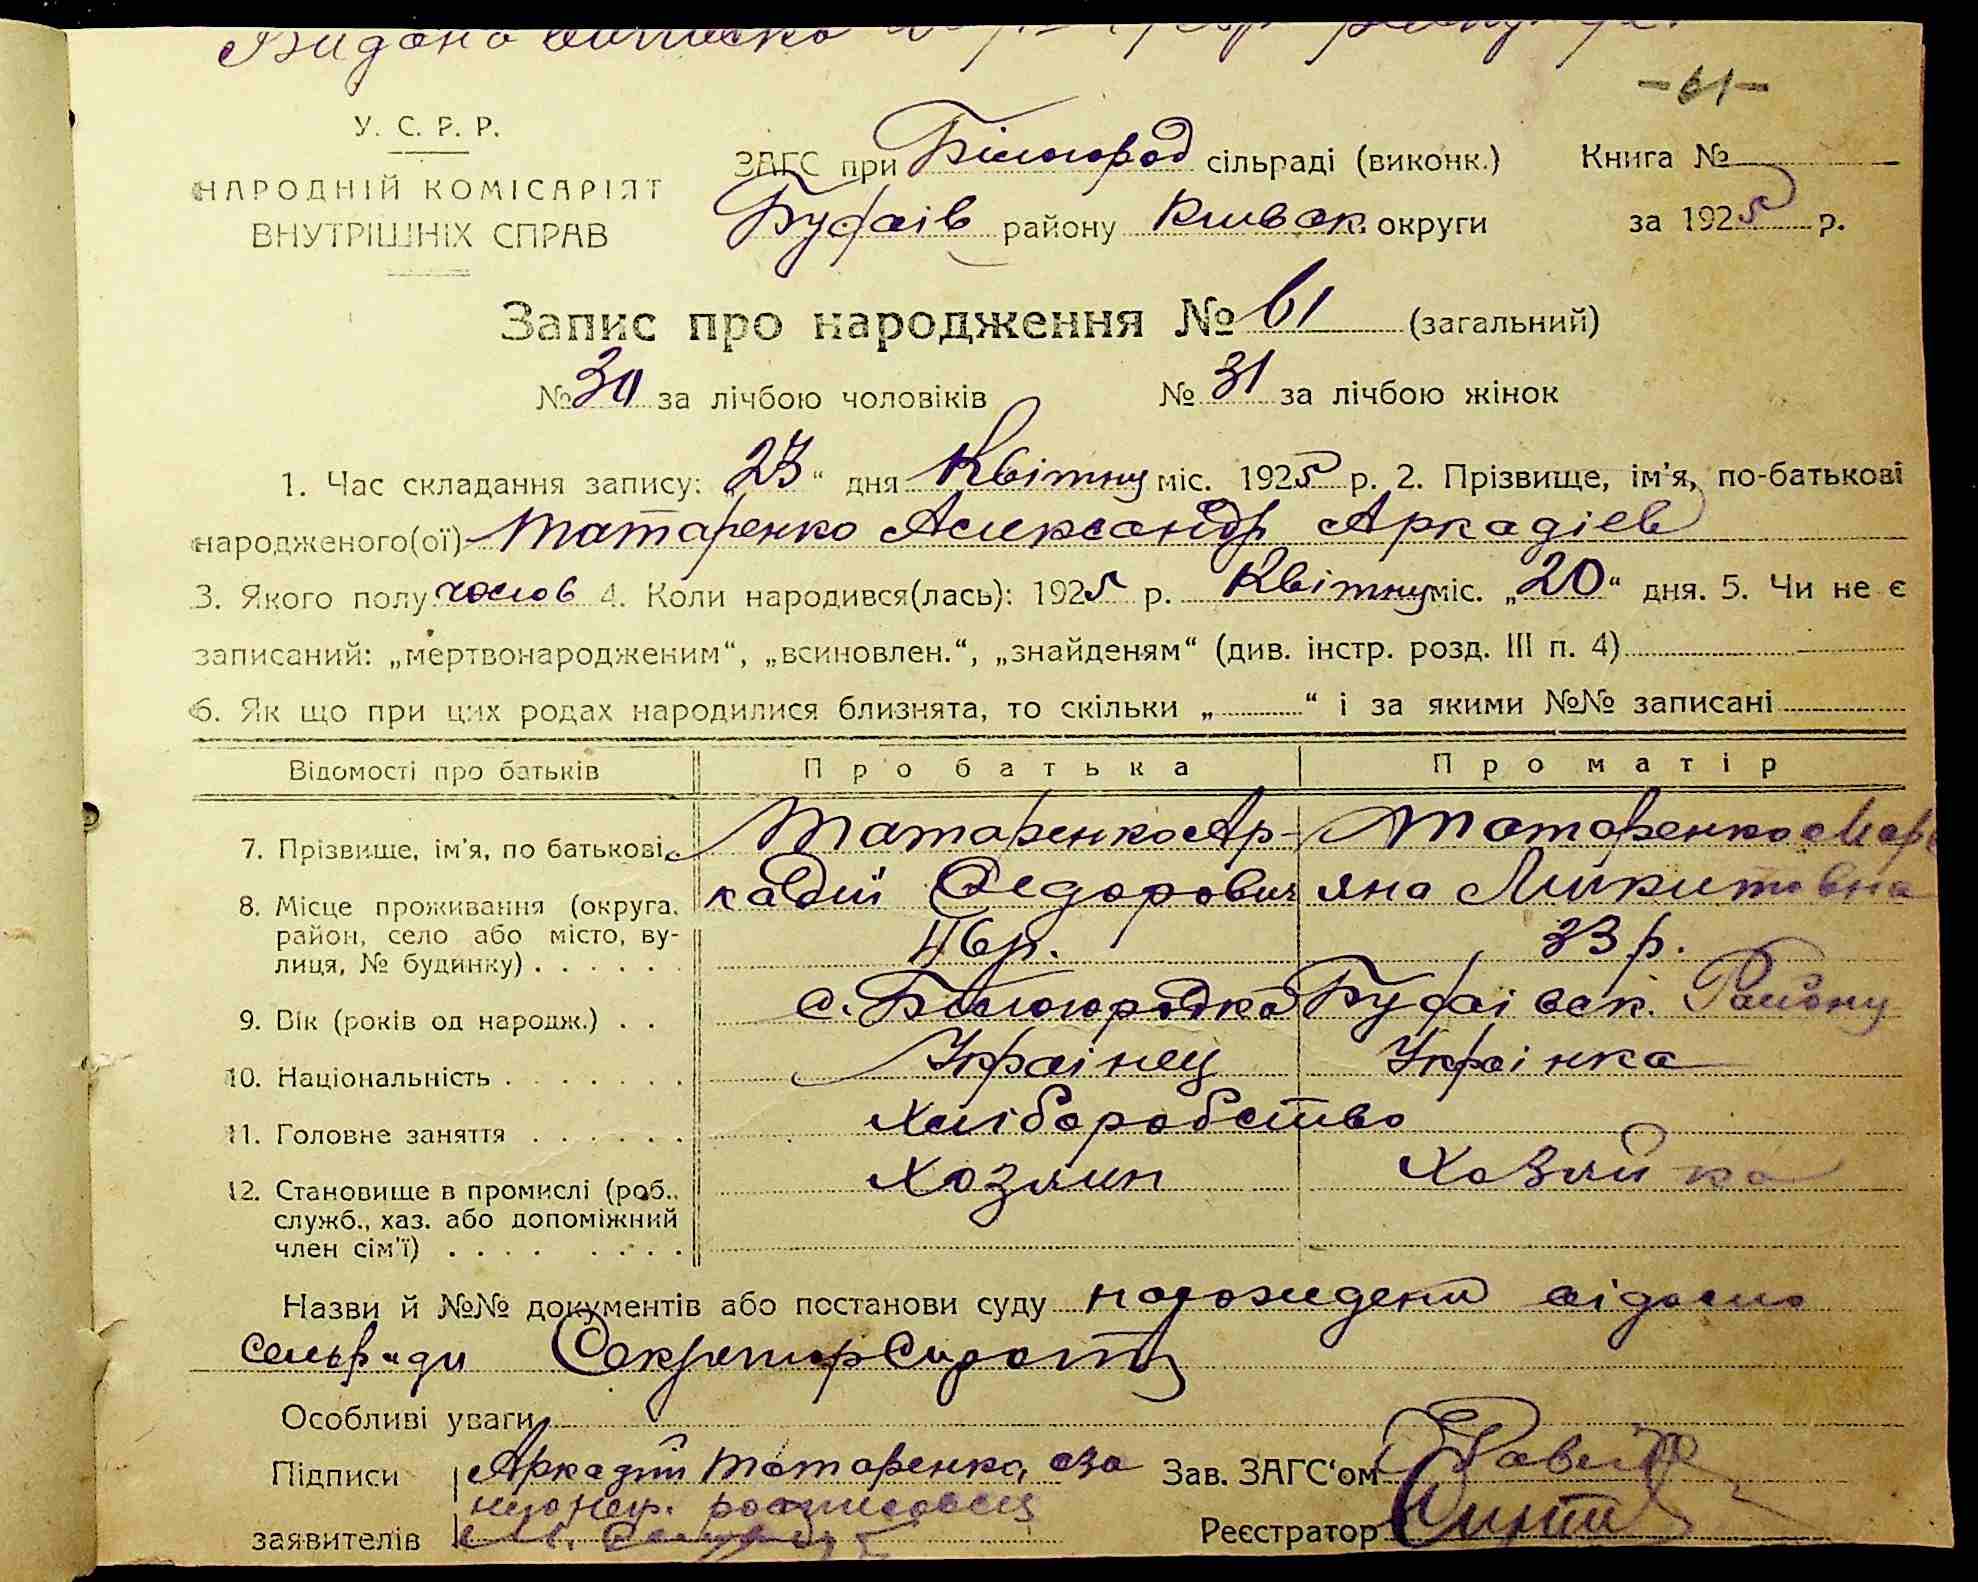 Видано
-61-
У. С. Р. Р.
НАРОДНІЙ КОМІСАРІЯТ
ВНУТРІШНІХ СПРАВ
ЗАГС при Білогород сільраді (виконк.) Книга №
Буфаїв району Київськ. округи за 1925 р.
Запис про народження № 61 (загальний)
№ 30 за лічбою чоловіків № 31 за лічбою жінок
1. Час складання запису: „23“ дня Квітну міс. 1925 р. 2. Прізвище, ім'я, по-батькові
народженого(ої) Татаренко Александр Аркадіев
3. Якого полу чолов 4. Коли народився(лась): 1925 р. Квітну міс. „20“ дня. 5. Чи не є
записаний: „мертвонародженим“, „всиновлен.“, „знайденям“ (див. інстр. розд. III п. 4)
6. Як що при цих родах народилися близнята, то скільки „ “ і за якими №№ записані
Відомості про батьків Про батька Про матір
7. Прізвище, ім'я, по батькові Татаренко Ар- Татаренко Мар
8. Місце проживання (округа, кадий Федорович яна Микитовна
район, село або місто, ву- 46 р. 33 р.
лиця, № будинку)
9. Вік (років од народж.) с. Білогородка Буфаівськ. Району
10. Національність Украінец Украінка
11. Головне заняття Хліборобство
12. Становище в промислі (роб., Хозяин Хозяйка
служб., хаз. або допоміжний
член сім'ї)
Назви й №№ документів або постанови суду
сельради Секретар
Особливі уваги
Підписи Аркадий Татаренко, за Зав. ЗАГС'ом
заявителів Реєстратор